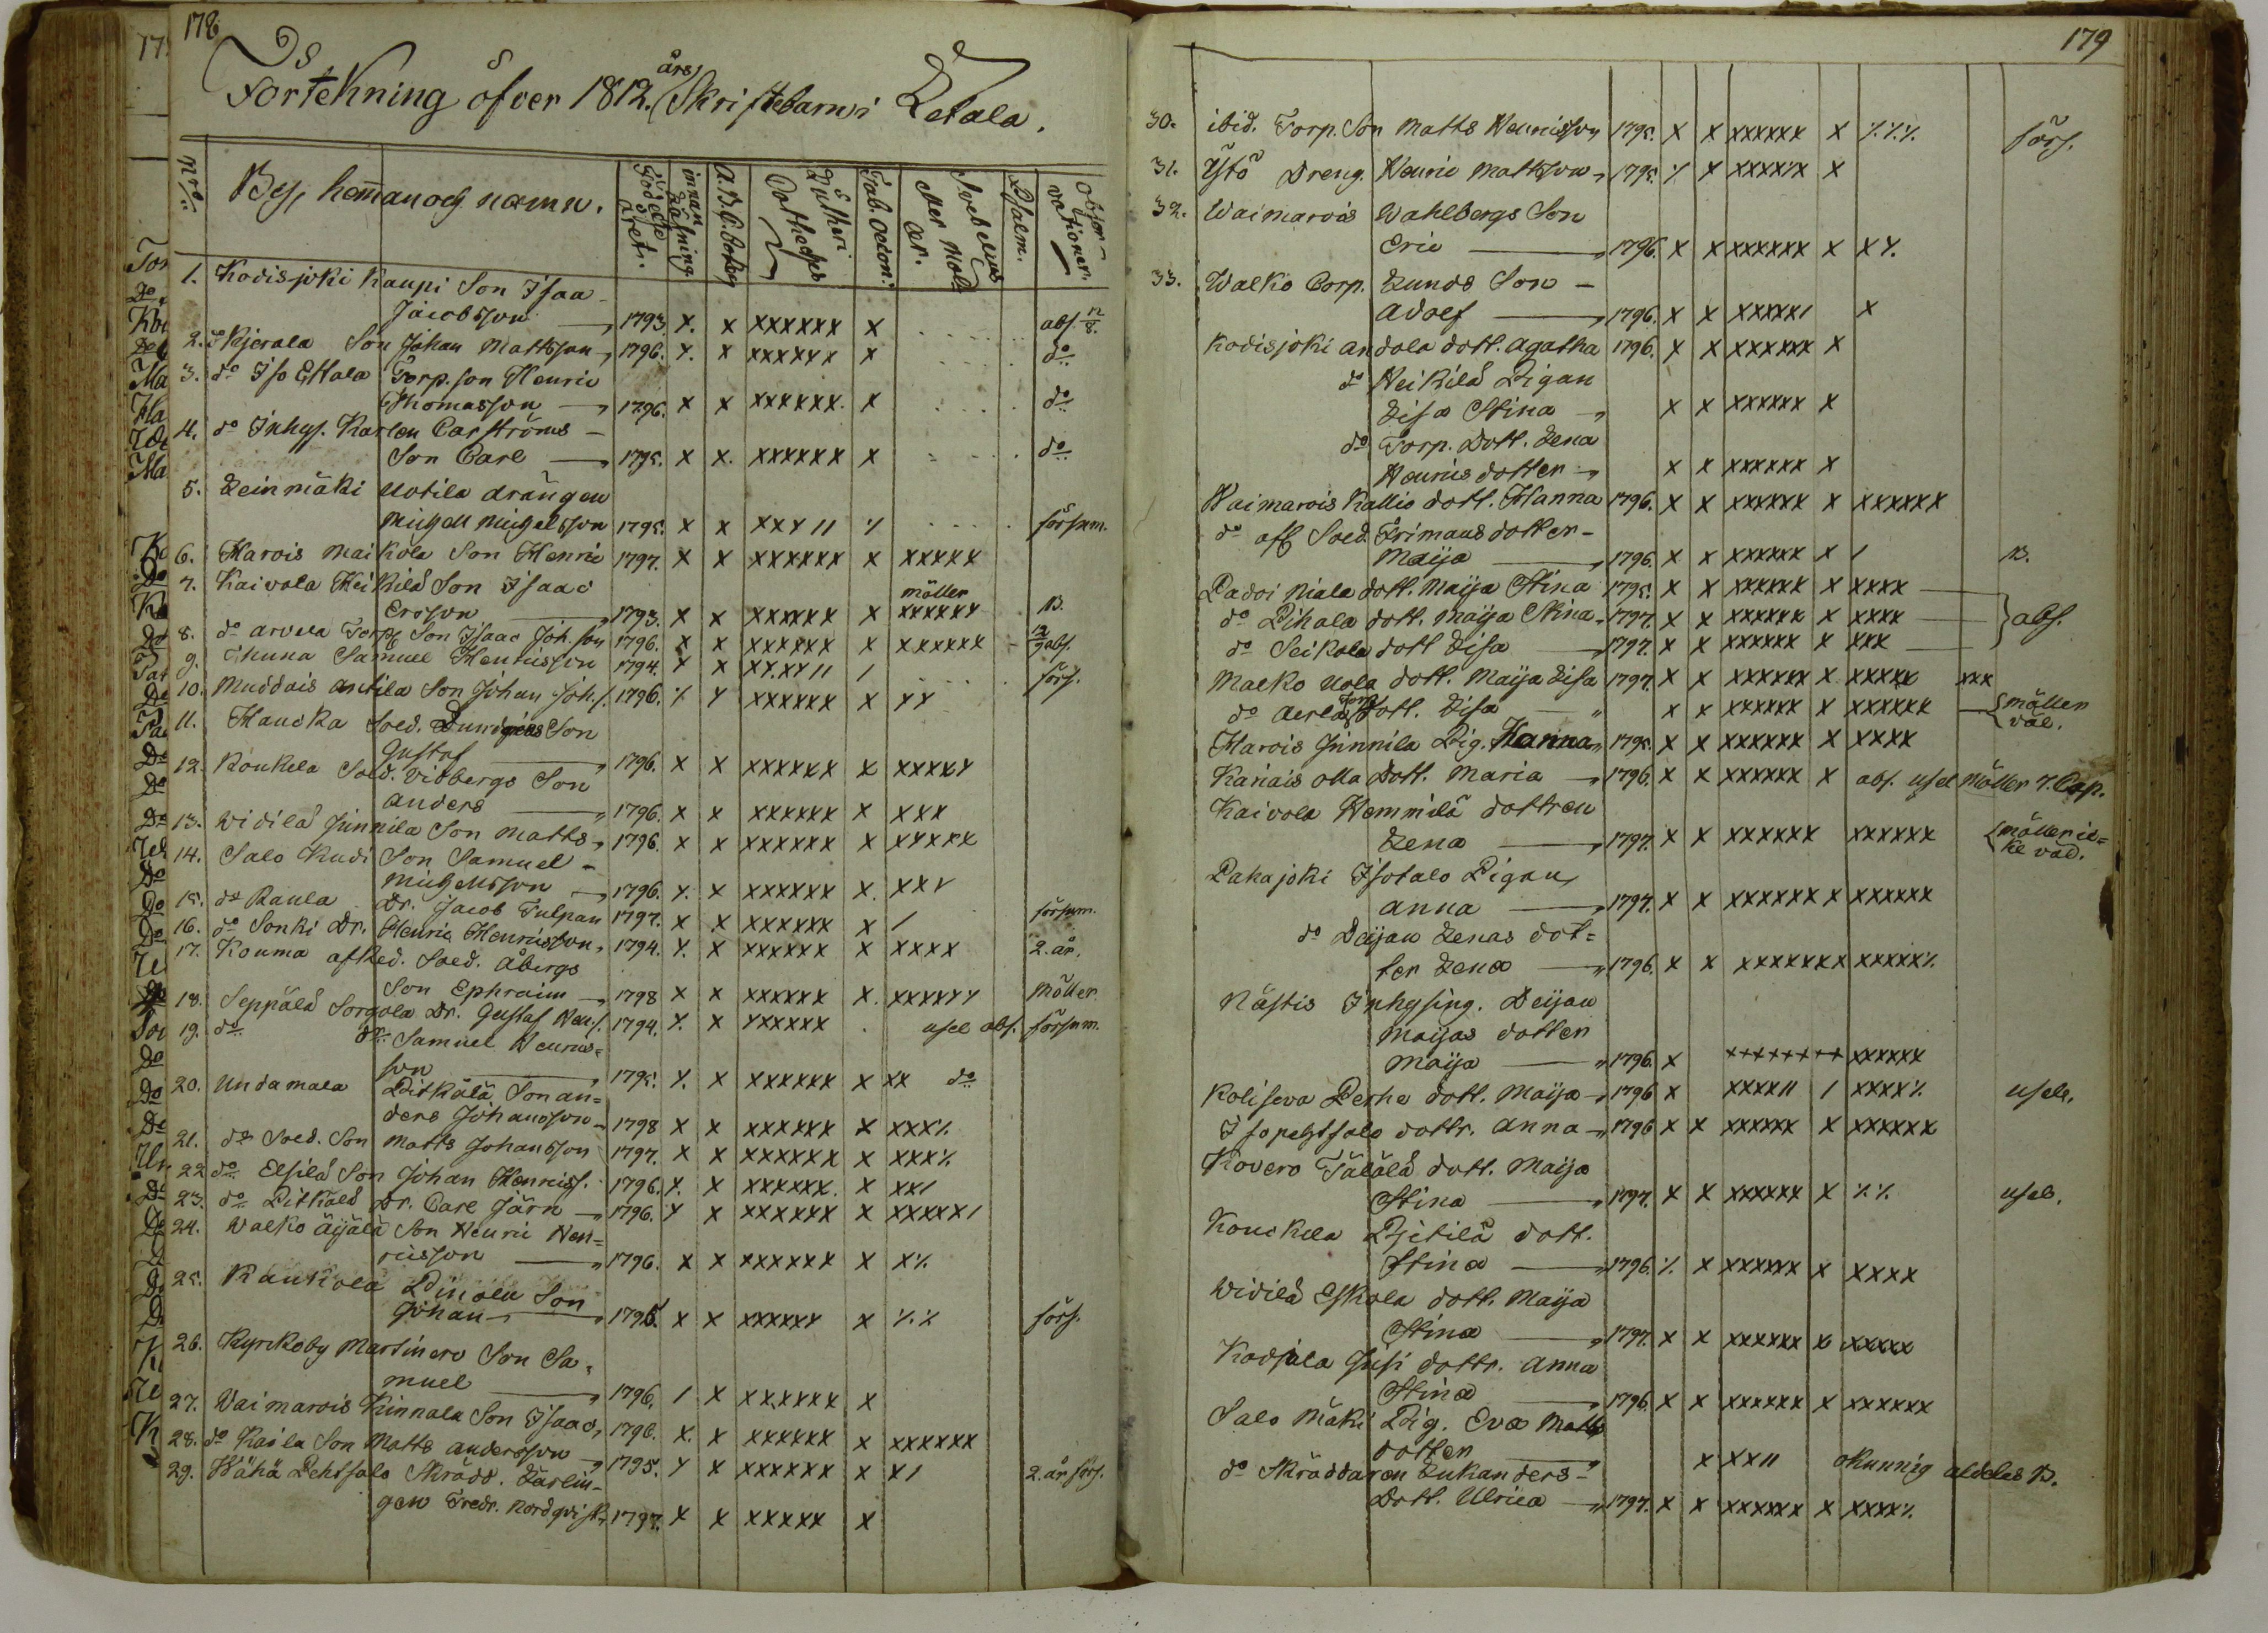 178
Förtekning öfver 1812. års Skriftebarn i Letala.
Nro By, hemman och namn. Födelse året. innan läsning A.B.C. boken Lutheri Catheches Tab. Oecon. Svebelius Mer Möller. Psalm. Observationer.
1. Kodisjoki Kaupi Son Isaa
Jacobsson 1793. X. X XXXXXX X abs. 12/8.
2. do Kjerala Son Johan Mattsson 1796. X. X XXXXXX X do
3. do Iso Ettala Torp. son Henric
Thomasson 1796. X X XXXXXX. X do
4. do Inhys. Karlen Carströms
Son Carl 1795. X X. XXXXXX X do
5. Leinmäki Uotila drängen
Michell Michelsson 1795. X X XXX II % försum.
6. Harvois Maikola Son Henric 1797. X X XXXXXX X XXXXX
7. Kaivola Heikilä Son Isaac möller
Ersson 1793. X X XXXXXX X XXXXXX B.
8. do arvela Torp. Son Isaac Joh. son 1796. X X XXXXXX X XXXXXX 12/9 abs.
9. Samuel Henricsson 1794. X X XXXX II I förs.
10. Muddais Antila Son Johan Joh.s. 1796. % X XXXXXX X XX
11. Haucka Sold. Lundgrens Son
Gustaf 1796. X X XXXXXX X XXXXX
12. Koukela Sold. Vidbergs Son
Anders 1796. X X XXXXXX X XXX
13. Vidilä Junnila Son Matts 1796. X X XXXXXX X XXXXX
14. Salo Kudi Son Samuel
Michelsson 1796. X. X XXXXXX X. XXI
15. do Raula Dr. Jacob Tulpan 1797. X X XXXXXX X I försum.
16. do Sonki Dr. Henric Henricsson, 1794. X. X XXXXXX X XXXX 2. år.
17. Kouma afsked. Sold. Åbergs
Son Ephraim 1798 X X XXXXXX X. XXXXXX Möller.
18. Seppälä Sorgola Dr. Gustaf Hen.s. 1794. X. X XXXXXX usel abs. försum.
19. do Dr. Samuel Henrics=
son 1795. X. X XXXXXX X XX do
20. Undamala Pitkälä Son an=
ders Johansson 1798 X X XXXXXX X XXX%
21. do Sold. Son Matts Johansson 1797. X X XXXXXX X XXX%
22 do Elsilä Son Johan Henricss. 1796. X. X XXXXXX. X XXI
23. do Pitkälä Dr. Carl Järn 1796. X X XXXXXX X XXXXXI
24. Walko Äijälä Son Henric Hen=
ricsson 1796. X X XXXXXX X X%
25. Kaukola Son
Johan 1795. X X XXXXXX X %% förs.
26. Kyrkoby Martinero Son Sa=
muel 1796. I X XXXXXX X
27. Vaimarois Kinnala Son Isaac, 1796. X. X XXXXXX X XXXXXX
28. do Kaila Son Matts andersson 1795. X X XXXXXX X XI 2. år förs.
29. Wähä Pehtsalo Skrädd. Lärlin=
gen Fredr. Nordqvist, 1797. X X XXXXX X
179
30. ibid. Torp. Son Matts Henricsson 1795. X X XXXXXX X %%% förs.
31. Ystö Dreng. Henric Mattsson 1795. % X XXXXXX X
32. Waimarois Wahlbergs Son
Eric 1796. X X XXXXXX X X%
33. Walko Corp. Lunds Son
Adolf 1796. X X XXXXXI X
Kodisjoki Andola dott. Agatha 1796. X X XXXXXX X
do Heikilä Pigan
Lisa Stina X X XXXXXX X
do Torp. Dott. Lena
Henricsdotter X X XXXXXX X
Waimarois Kallio dott. Hanna 1796. X X XXXXXX X XXXXXX
do afsk. Sold. Frimans dotter
Maija 1796. X X XXXXXX X I B.
Padoi Niala dott. Maija Stina 1795. X X XXXXXX X XXXX
do Pihala dott. Maija Stina 1797. X X XXXXXX X XXXX abs.
do Seikola dott Lisa 1797. X X XXXXXX X XXX
Malko Uola dott. Maija Lisa 1797. X X XXXXXX X XXXXX XXX
do Aerla Torp. Dott. Lisa " X X XXXXXX X XXXXXX möller
väl.
Harvois Junnila Pig. Hanna 1795. X X XXXXXX X XXXX
Kariais Olla Dott. Maria 1796. X X XXXXXX X abs. usel Möller 7. Cap.
Kaivola Hemmilä dottren
Lena 1797. X X XXXXXX XXXXXX möller ic=
ke väl.
Pahajoki Isotalo Pigan
Anna 1797. X X XXXXXXX XXXXXX
do Deijan Lenas dot=
ter Lena 1796. X X XXXXXXX XXXXX%
Nästis Inhysing. Deijan
Maijas dotter
Maija 1796. X XXXXXXXX XXXXXX
Koliseva Perhe dott. Maija 1796 X XXXXII I XXXX% usel.
Isopehtsalo dottr. Anna 1796 X X XXXXXX X XXXXXX
Kovero Tälälä dott. Maija
Stina 1797. X X XXXXXX X %% usel.
Kouckela Pjitilä dott.
Stina 1796. % X XXXXXX X XXXX
Vidilä Eskola dott. Maija
Stina 1797. X X XXXXXX X XXXXX
Kodjala Jusi dottr. Anna
Stina 1796. X X XXXXXX X XXXXXX
Salo Mäki Pig. Eva Matts
dotter X XXII okunnig aldeles B.
do Skräddaren Lukanders
Dott. Ulrica 1797. X X XXXXXX X XXXX%